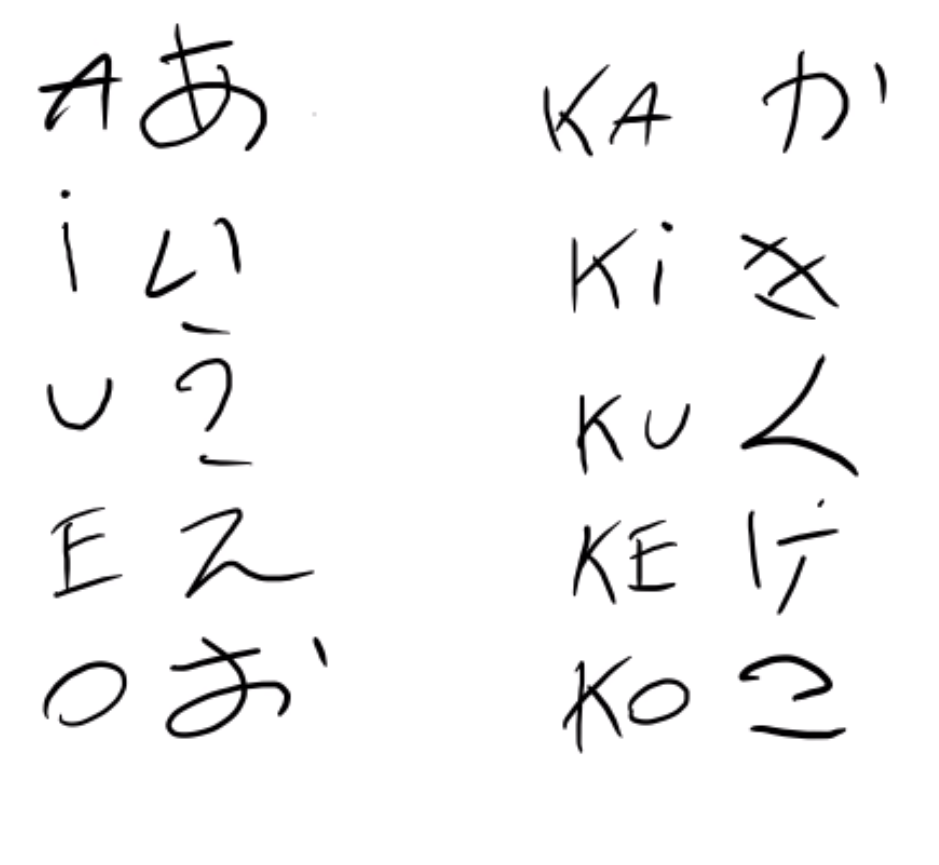 A あ
i い
U う
E え
O お
KA か
Ki き
KU く
KE け
KO こ